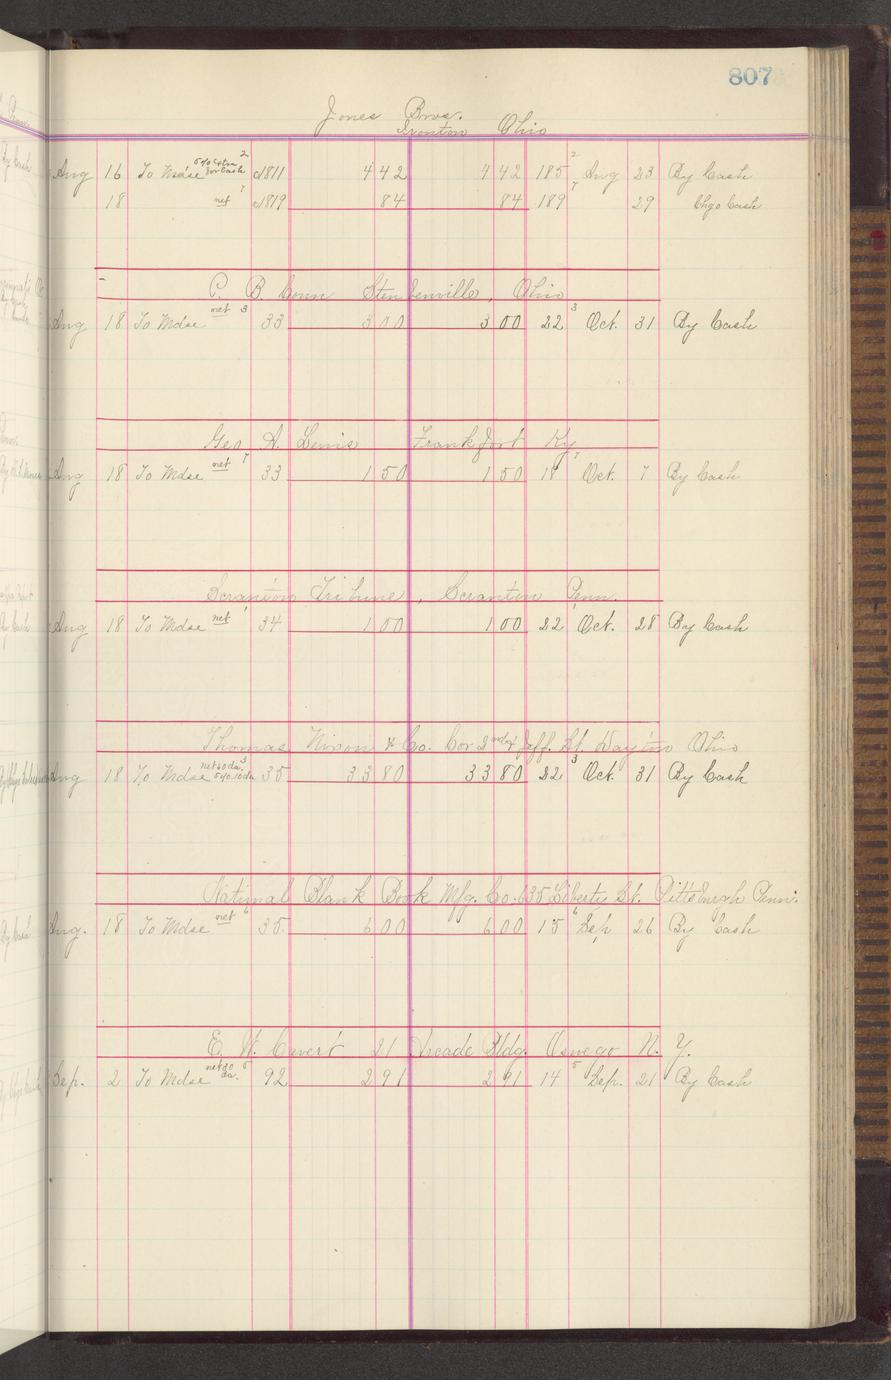 807
Jones Bros.
Ironton Ohio
Aug 16 To Mdse for Cash 2 c1811 4 42 4 42 185 2 Aug 23 By Cash
18 net 7 c1819 84 84 189 7 29 Chgo Cash
C. B. Conn Steubenville, Ohio
Aug 18 To Mdse net 3 33 3 00 3 00 22 3 Oct. 31 By Cash
Geo A. Lewis Frankfort Ky
Aug 18 To Mdse net 7 33 1 50 1 50 18 7 Oct. 7 By Cash
Scranton Tribune, Scranton Penn.
Aug 18 To Mdse net 1 34 1 00 1 00 22 1 Oct. 28 By Cash
Thomas Nixon & Co. Cor 2nd & Jeff. St. Dayton Ohio
Aug 18 To Mdse net 60 da. 5% 10 da 3 35 33 80 33 80 22 3 Oct. 31 By Cash
National Blank Book Mfg. Co. 635 Liberty St. Pittsburgh Penn.
Aug. 18 To Mdse net 6 35 6 00 6 00 15 6 Sep 26 By Cash
E. W. Cavert 21 Arcade Bldg. Oswego N. Y.
Sep. 2 To Mdse net 30 da. 5 92 2 91 2 91 14 5 Sep. 21 By Cash